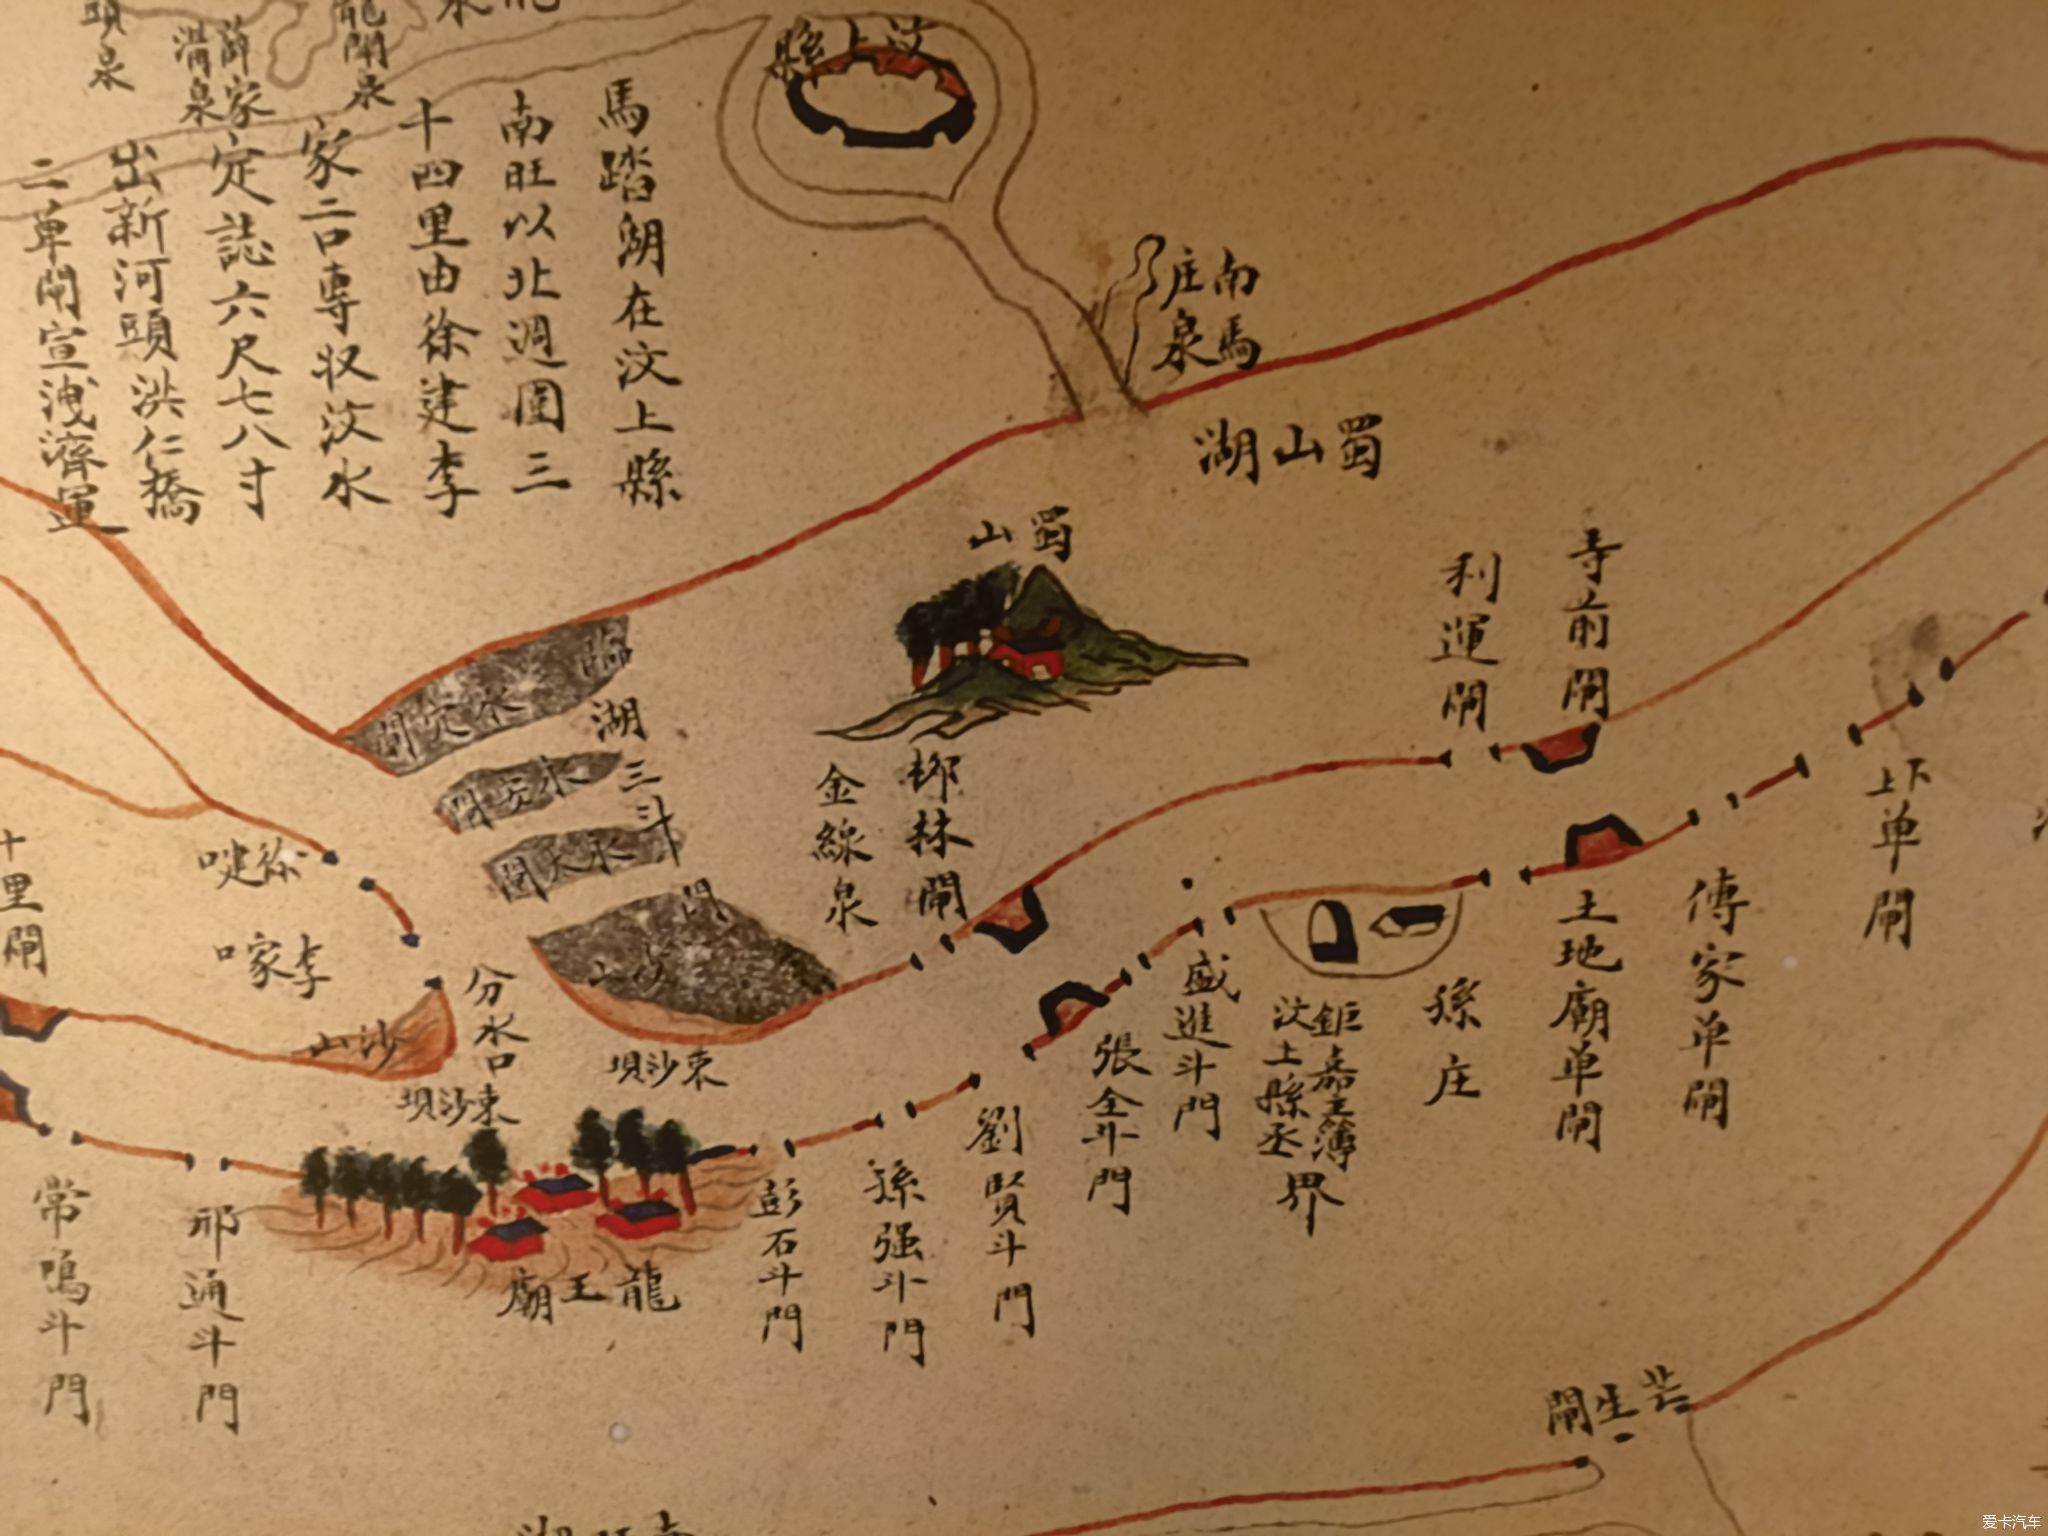 汶上縣
馬踏湖在汶上縣
南旺以北週圍三
十四里由徐建李
家二口專収汶水
定誌六尺七八寸
出新河頭洪仁橋
二单閘宣洩濟運
龍閘泉
薛家
溝泉
頭泉
南馬
庄泉
蜀山湖
蜀山
寺前閘
利運閘
柳林閘
金線泉
臨湖三斗門
永定閘
永安閘
永泰閘
沙山
徐建口
李家口
十里閘
分水口
沙山
束沙垻
束沙垻
上下单閘
傅家单閘
土地廟单閘
孫庄
鉅嘉主簿
汶上縣丞
界
盛進斗門
張全斗門
劉賢斗門
孫强斗門
彭石斗門
龍王廟
邢通斗門
常鳴斗門
芒生閘
爱卡汽车